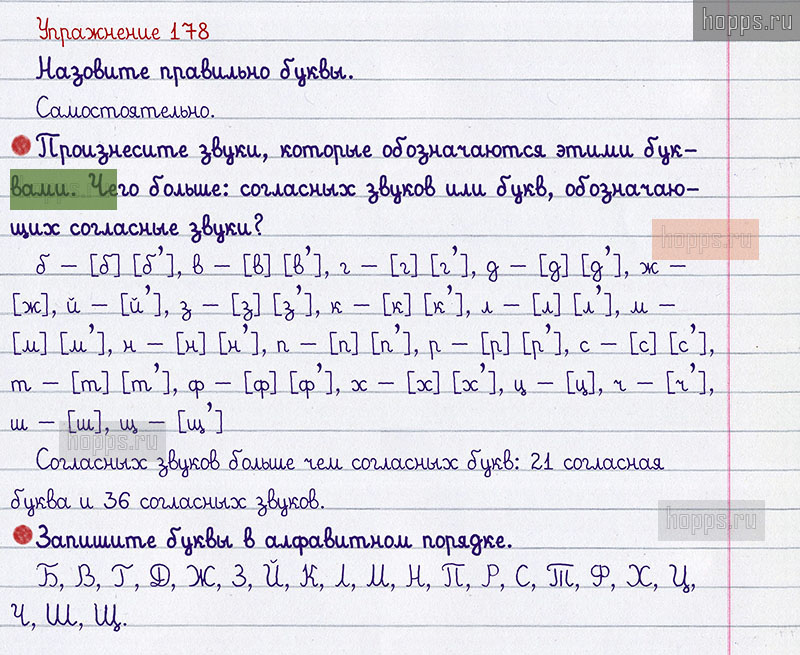 hopps.ru
Упражнение 178
Назовите правильно буквы.
Самостоятельно.
Произнесите звуки, которые обозначаются этими бук-
вами. Чего больше: согласных звуков или букв, обозначаю-
щих согласные звуки?
hopps.ru
б – [б] [б’], в – [в] [в’], г – [г] [г’], д – [д] [д’], ж –
[ж], й – [й’], з – [з] [з’], к – [к] [к’], л – [л] [л’], м –
[м] [м’], н – [н] [н’], п – [п] [п’], р – [р] [р’], с – [с] [с’],
т – [т] [т’], ф – [ф] [ф’], х – [х] [х’], ц – [ц], ч – [ч’],
ш – [ш], щ – [щ’]
hopps.ru
Согласных звуков больше чем согласных букв: 21 согласная
буква и 36 согласных звуков.
hopps.ru
Запишите буквы в алфавитном порядке.
Б, В, Г, Д, Ж, З, Й, К, Л, М, Н, П, Р, С, Т, Ф, Х, Ц,
Ч, Ш, Щ.